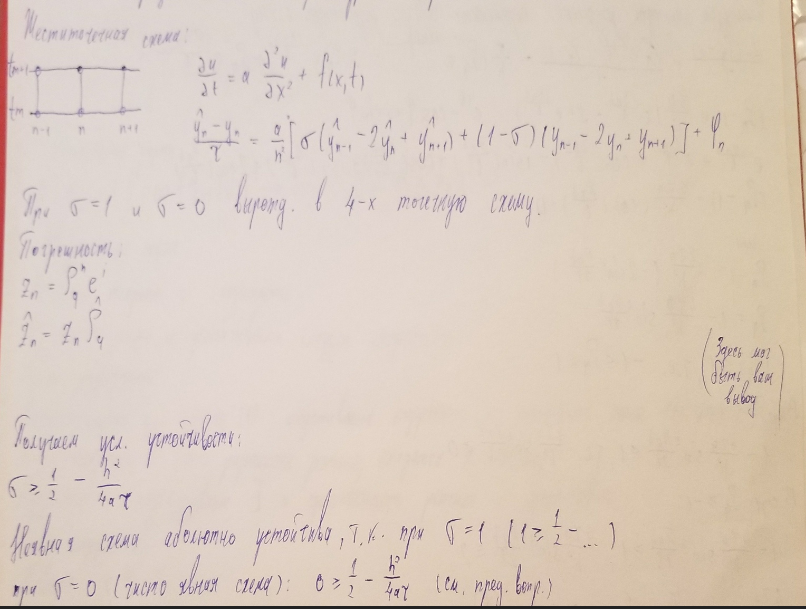 Шеститочечная схема:
tm+1
tm
n-1 n n+1
∂u/∂t = a ∂²u/∂x² + f(x,t)
(ŷn - yn)/τ = a/h² [σ(ŷn-1 - 2ŷn + ŷn+1) + (1-σ)(yn-1 - 2yn + yn+1)] + φn
При σ=1 и σ=0 вырожд. в 4-х точечную схему.
Погрешность:
zn =
ẑn = zn
(Здесь мог
быть ваш
вывод)
Получаем усл. устойчивости:
σ ≥ 1/2 - h²/4aτ
Неявная схема абсолютно устойчива, т.к. при σ=1 (1 ≥ 1/2 - ...)
при σ=0 (чисто явная схема): 0 ≥ 1/2 - h²/4aτ (см. пред. вопр.)